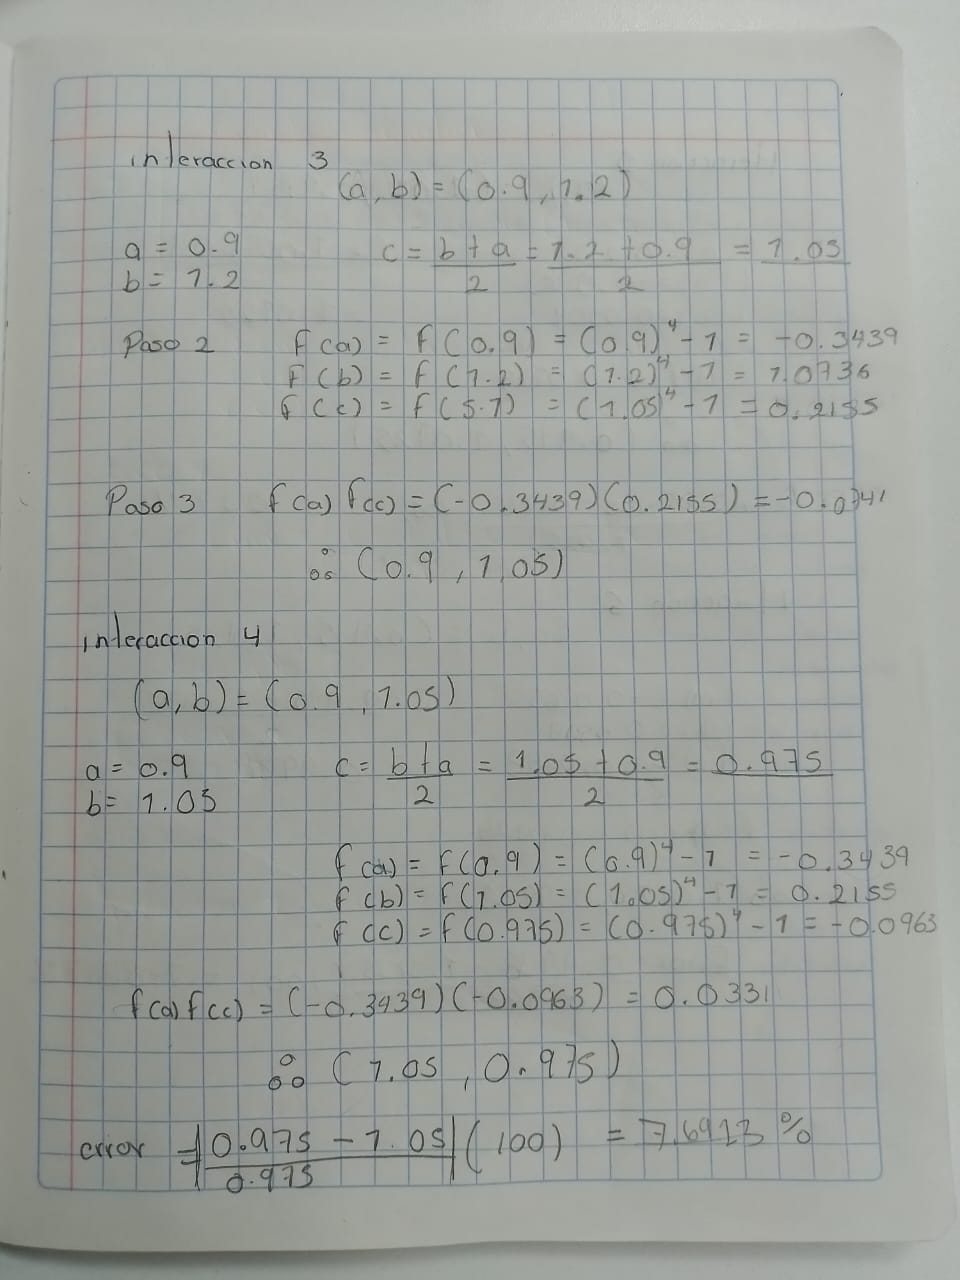 interaccion 3
(a,b) = (0.9, 1.2)
a = 0.9
b = 1.2
c = b + a / 2 = 1.2 + 0.9 / 2 = 1.05
Paso 2 f(a) = f(0.9) = (0.9)^4 - 1 = -0.3439
f(b) = f(1.2) = (1.2)^4 - 1 = 1.0736
f(c) = f(5.1) = (1.05)^4 - 1 = 0.2155
Paso 3 f(a) f(c) = (-0.3439)(0.2155) = -0.0741
∴ (0.9, 1.05)
interaccion 4
(a,b) = (0.9, 1.05)
a = 0.9
b = 1.05
c = b + a / 2 = 1.05 + 0.9 / 2 = 0.975
f(a) = f(0.9) = (0.9)^4 - 1 = -0.3439
f(b) = f(1.05) = (1.05)^4 - 1 = 0.2155
f(c) = f(0.975) = (0.975)^4 - 1 = -0.0963
f(a) f(c) = (-0.3439)(-0.0963) = 0.0331
∴ (1.05, 0.975)
error = |0.975 - 1.05 / 0.975| (100) = 7.6923 %